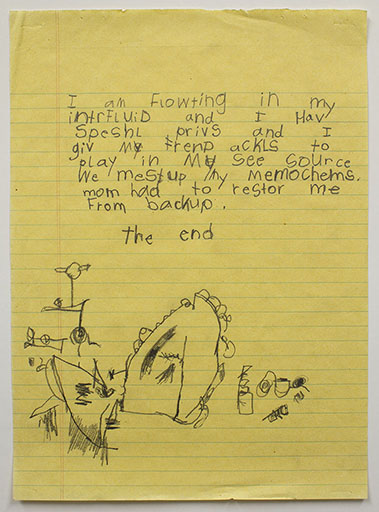 I am Flowting in my
intrFluiD and I Hav
Speshl privs and I
giv my Frend ackls to
play in My See Source
We mest up my memochems.
mom had to restor me
From backup.
the end